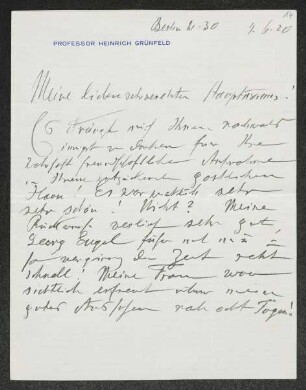 Berlin W-30 4.6.20
PROFESSOR HEINRICH GRÜNFELD
Meine lieben verehrten Hauptmanns!
Es drängt mich Ihnen nochmals
innigst zu danken für Ihre
freundschaftliche Aufnahme
in Ihrem gastlichen
Haus! Es war wirklich sehr
sehr schön! Nicht? Meine
Rückreise verlief sehr gut,
Georg Engel fuhr mit mir
so verging die Zeit recht
schnell! Meine Frau war
sichtlich erfreut über mein
gutes Aussehen nach acht Tagen!